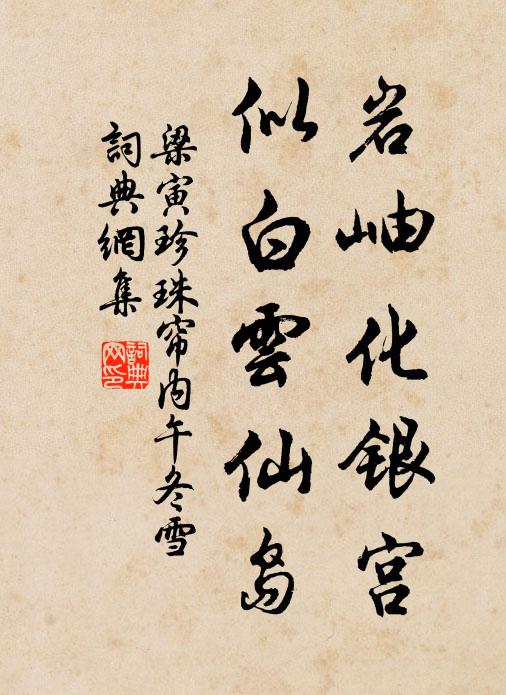 岩岫化银宫
似白雲仙島
梁寅珍珠帘内午冬雪
詞典網集
詞典网印